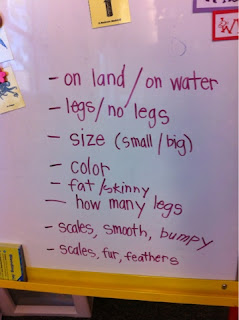 - on land / on water
- legs / no legs
- size (small / big)
- color
- fat / skinny
- how many legs
- scales, smooth, bumpy
- scales, fur, feathers